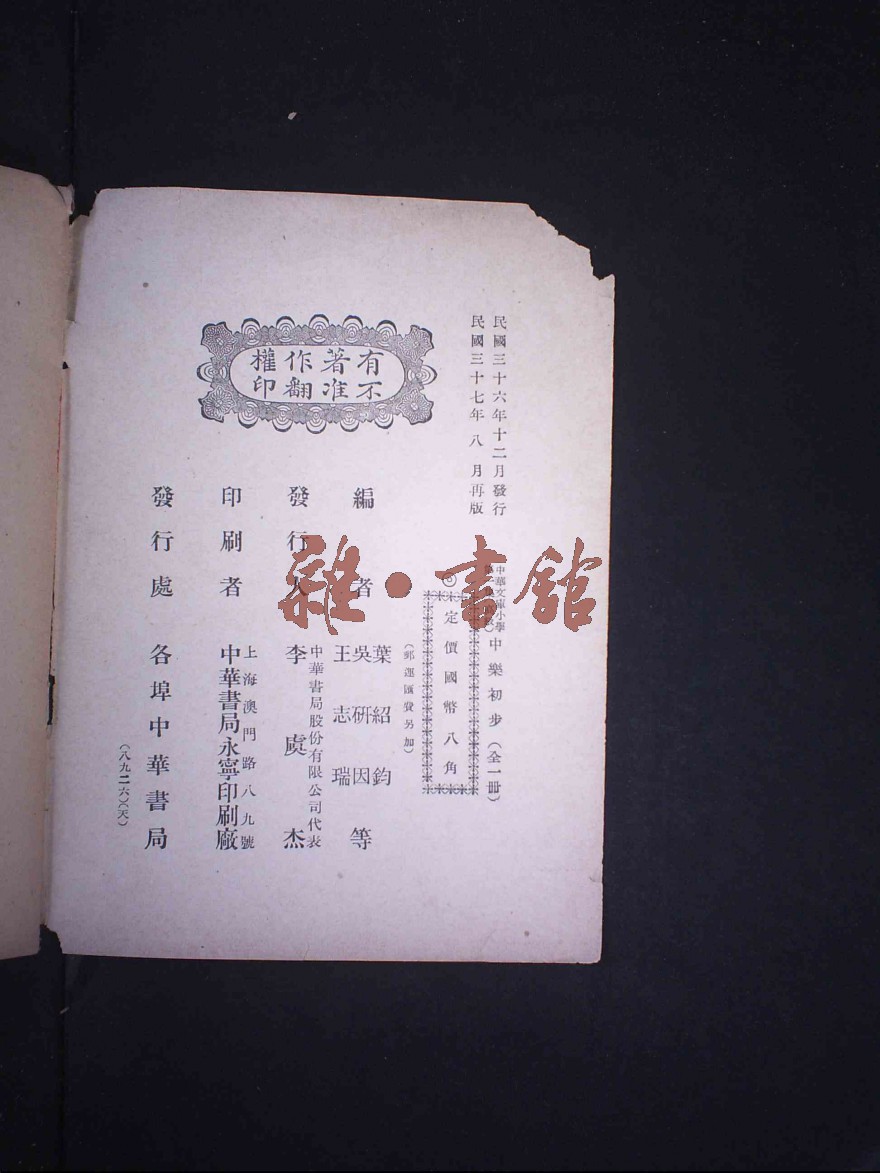 民國三十六年十二月發行
民國三十七年八月再版
中華文庫小學
中樂初步(全一冊)
◎定價國幣八角
(郵運匯費另加)
有著作權
不准翻印
編者
葉紹鈞
吳研因等
王志瑞
發行人
中華書局股份有限公司代表
李虞杰
印刷者
上海澳門路八九號
中華書局永寧印刷廠
發行處 各埠中華書局
(八九二六)(天)
雜·書館